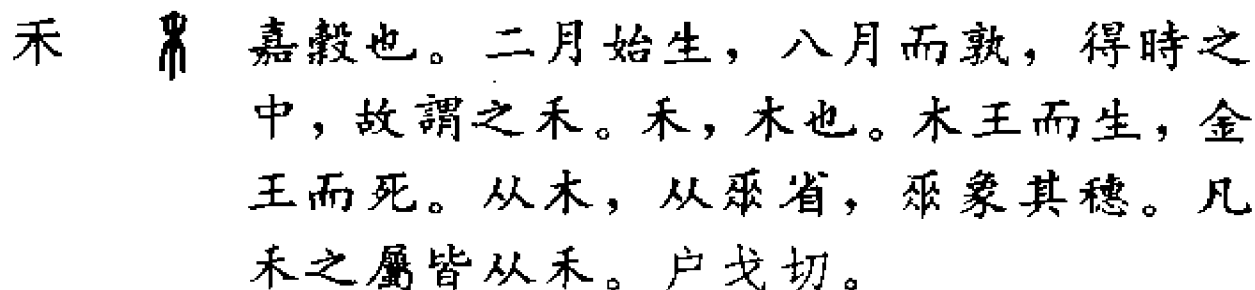 禾 嘉穀也。二月始生，八月而孰，得時之
中，故謂之禾。禾，木也。木王而生，金
王而死。从木，从𠂹省，𠂹象其穗。凡
禾之屬皆从禾。户戈切。